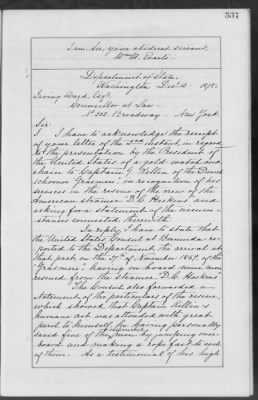 537
I am Sir, your obedient servant,
Wm M. Evarts.
Department of State,
Washington Dec. 12 - 1878.
Irving Ward, Esqr.
Counsellor at Law
No. Broadway - New York
Sir
I have to acknowledge the receipt
of your letter of the 2nd instant, in regard
to the presentation by the President of
the United States of a gold watch and
chain to Captain G. of the
schooner "Grasmere" in recognition of his
services in the rescue of the crew of the
American steamer and
asking for a statement of the circum
stances connected therewith.
In reply, I have to state that
the United States Consul at Bermuda, re-
ported to the Department the arrival at
that port on the of November 1867, of the
"Grasmere" having on board nine men
rescued from the steamer
The Consul also forwarded a
statement of the particulars of the rescue,
which showed that Captain
humane act was attended with great
peril to himself, he having personally
saved five of the men by jumping over-
board and making a rope fast to each
of them. As a testimonial of his high